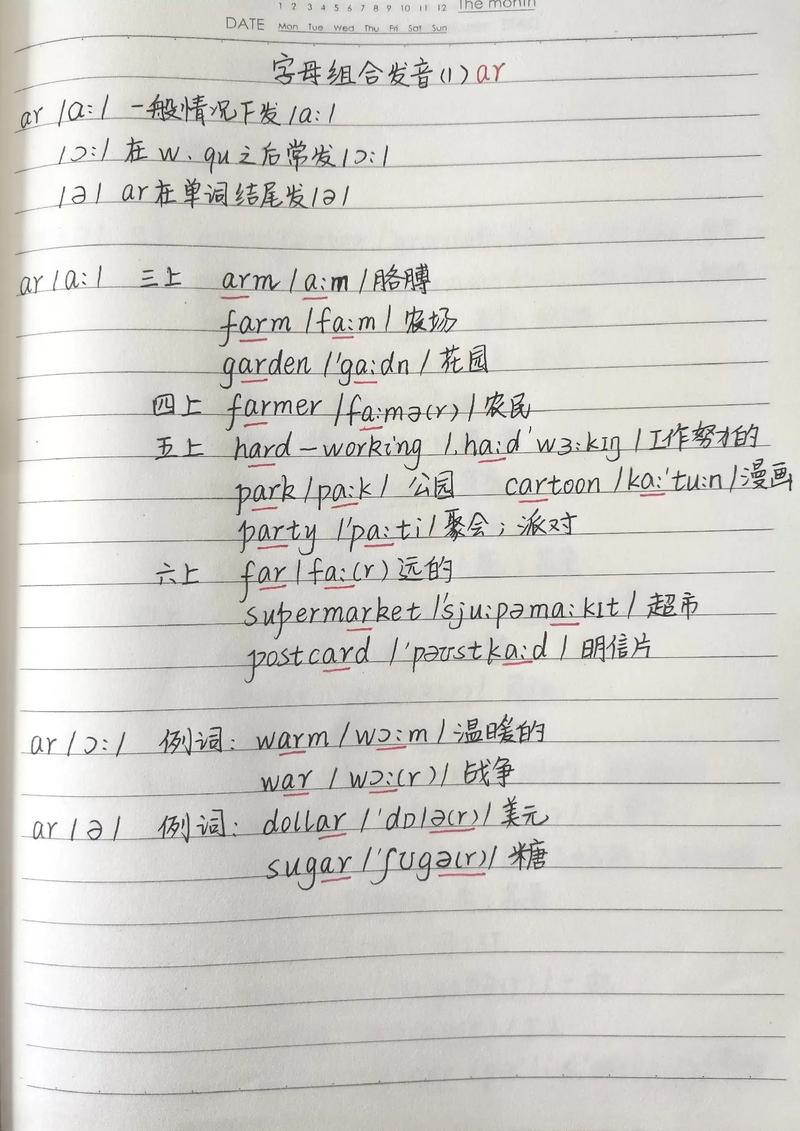 1 2 3 4 5 6 7 8 9 10 11 12 The month
DATE Mon Tue Wed Thu Fri Sat Sun
字母组合发音(1) ar
ar /a:/ 一般情况下发/a:/
/ɔ:/ 在w、qu之后常发/ɔ:/
/ə/ ar在单词结尾发/ə/
ar /a:/ 三上 arm /a:m/ 胳膊
farm /fa:m/ 农场
garden /'ga:dn/ 花园
四上 farmer /fa:mə(r)/ 农民
五上 hard-working /ˌha:d'wɜ:kɪŋ/ 工作努力的
park /pa:k/ 公园 cartoon /ka:'tu:n/ 漫画
party /'pa:ti/ 聚会；派对
六上 far /fa:(r) 远的
supermarket /'sju:pəma:kɪt/ 超市
postcard /'pəʊstka:d/ 明信片
ar /ɔ:/ 例词: warm /wɔ:m/ 温暖的
war /wɔ:(r)/ 战争
ar /ə/ 例词: dollar /'dɒlə(r)/ 美元
sugar /'ʃʊgə(r)/ 糖